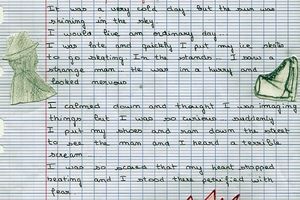 It was a very cold day but the sun was
shining in the sky
I would live an ordinary day.
I was late and quickly I put my ice skates
to go skating. In the stands. I saw a
strange man. He was in a hurry and
looked nervous.
I calmed down and thought I was imaging
things but I was so curious suddenly
I put my shoes and ran down the street
to see the man and I heard a terrible
scream
I was so scared that my heart stopped
beating and I stood there petrified with
fear